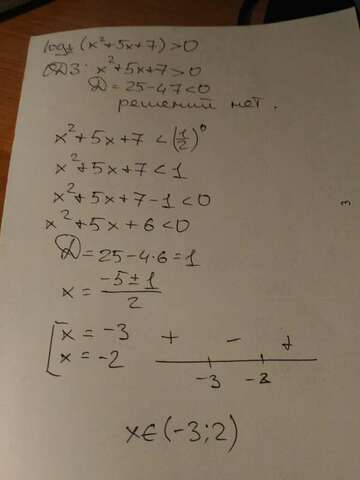 log½(x²+5x+7)>0
ОДЗ: x²+5x+7>0
D=25-47<0
решений нет.
x²+5x+7<(1/2)⁰
x²+5x+7<1
x²+5x+7-1<0
x²+5x+6<0
D=25-4·6=1
x = (-5±1)/2
[x = -3
x = -2
+ - +
-3 -2
x∈(-3;2)
3